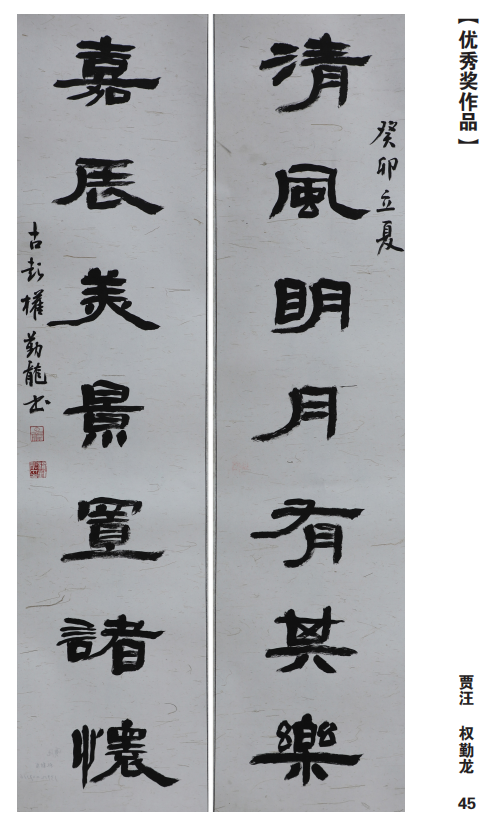 【优秀奖作品】
清風明月有其樂
癸卯立夏
嘉辰美景置諸懷
古彭權勤龍书
贾汪 权勤龙
45